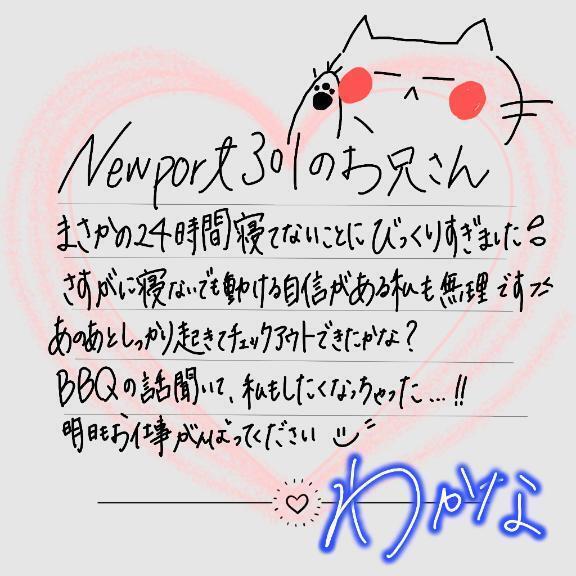 Newport301のお兄さん
まさかの24時間寝てないことにびっくりすぎました!
さすがに寝ないでも動ける自信がある私も無理です
あのあとしっかり起きてチェックアウトできたかな?
BBQの話聞いて、私もしたくなっちゃった...!!
明日もお仕事がんばってください
わかな